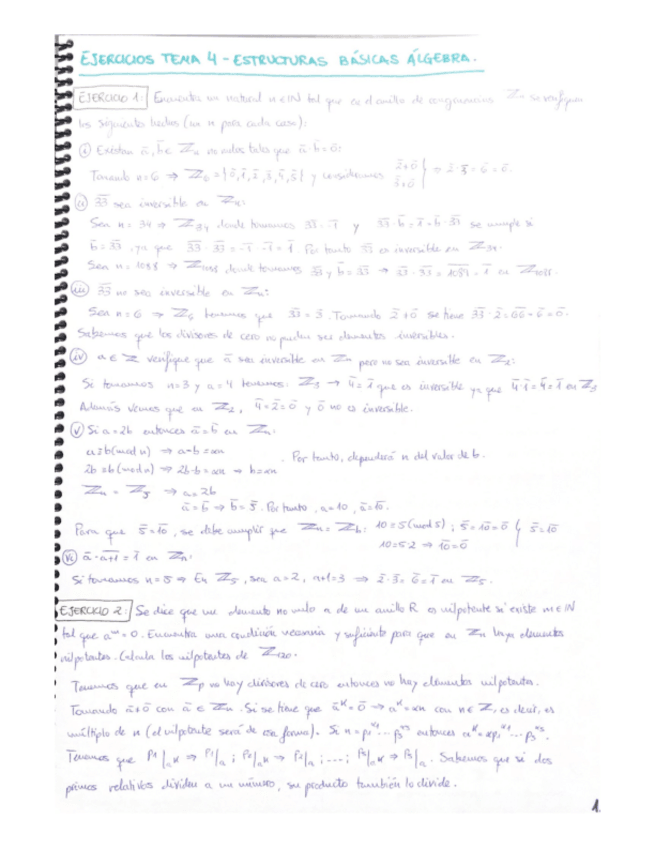 EJERCICIOS TEMA 4 - ESTRUCTURAS BÁSICAS ÁLGEBRA.
EJERCICIO 1: Encuentra un natural n∈ℕ tal que en el anillo de congruencias ℤn se verifiquen
los siguientes hechos (un n para cada caso):
i) Existan ā, b̄ ∈ ℤn no nulos tales que ā·b̄ = 0̄:
Tomando n=6 ⇒ ℤ6 = {0̄,1̄,2̄,3̄,4̄,5̄} y consideramos 2̄≠0̄ 3̄≠0̄ } ⇒ 2̄·3̄ = 6̄ = 0̄.
ii) 33 sea inversible en ℤn:
Sea n=34 ⇒ ℤ34, donde tenemos 33 = -1 y 33·b̄ = 1̄ = b̄·33 se cumple si
b̄ = 33, ya que 33·33 = -1·-1 = 1̄. Por tanto 33 es inversible en ℤ34.
Sea n=1088 ⇒ ℤ1088, donde tenemos 33 y b̄ = 33 ⇒ 33·33 = 1089 = 1̄ en ℤ1088.
iii) 33 no sea inversible en ℤn:
Sea n=6 ⇒ ℤ6 tenemos que 33 = 3̄. Tomando 2̄≠0̄ se tiene 33·2̄ = 66 = 6̄ = 0̄.
Sabemos que los divisores de cero no pueden ser elementos inversibles.
iv) a∈ℤ verifique que ā sea inversible en ℤn pero no sea inversible en ℤ2:
Si tomamos n=3 y a=4 tenemos: ℤ3 → 4̄ = 1̄ que es inversible ya que 4̄·1̄ = 4̄ = 1̄ en ℤ3
Además vemos que en ℤ2, 4̄ = 2̄ = 0̄ y 0̄ no es inversible.
v) Si a=2b entonces ā = b̄ en ℤn:
a≡b(mod n) ⇒ a-b = αn
2b≡b(mod n) ⇒ 2b-b = αn ⇒ b=αn . Por tanto, dependerá n del valor de b.
ℤn = ℤ5 ⇒ a=2b
ā = b̄ ⇒ b̄ = 5̄. Por tanto, a=10, ā = 10.
Para que 5̄ = 10, se debe cumplir que ℤn = ℤb: 10≡5(mod 5); 5̄ = 10 = 0̄ } 5̄ = 10
10=5·2 ⇒ 10 = 0̄
vi) ā·a+1 = 1̄ en ℤn:
Si tomamos n=5 ⇒ En ℤ5, sea a=2, a+1=3 ⇒ 2̄·3̄ = 6̄ = 1̄ en ℤ5.
EJERCICIO 2: Se dice que un elemento no nulo a de un anillo R es nilpotente si existe m∈ℕ
tal que aᵐ=0. Encuentra una condición necesaria y suficiente para que en ℤn haya elementos
nilpotentes. Calcula los nilpotentes de
Tenemos que en ℤp no hay divisores de cero entonces no hay elementos nilpotentes.
Tomando ā≠0̄ con ā∈ℤn. Si se tiene que āᴷ = 0̄ ⇒ aᴷ = αn con n∈ℤ, es decir, es
múltiplo de n (el nilpotente será de esa forma). Si n = p₁^α1 ... ps^αs entonces aᴷ = αp₁^α1 ... ps^αs.
Tenemos que P1|aᴷ ⇒ P1|a ; P2|aᴷ ⇒ P2|a ; ... ; Ps|aᴷ ⇒ Ps|a. Sabemos que si dos
primos relativos dividen a un número, su producto también lo divide.
1.